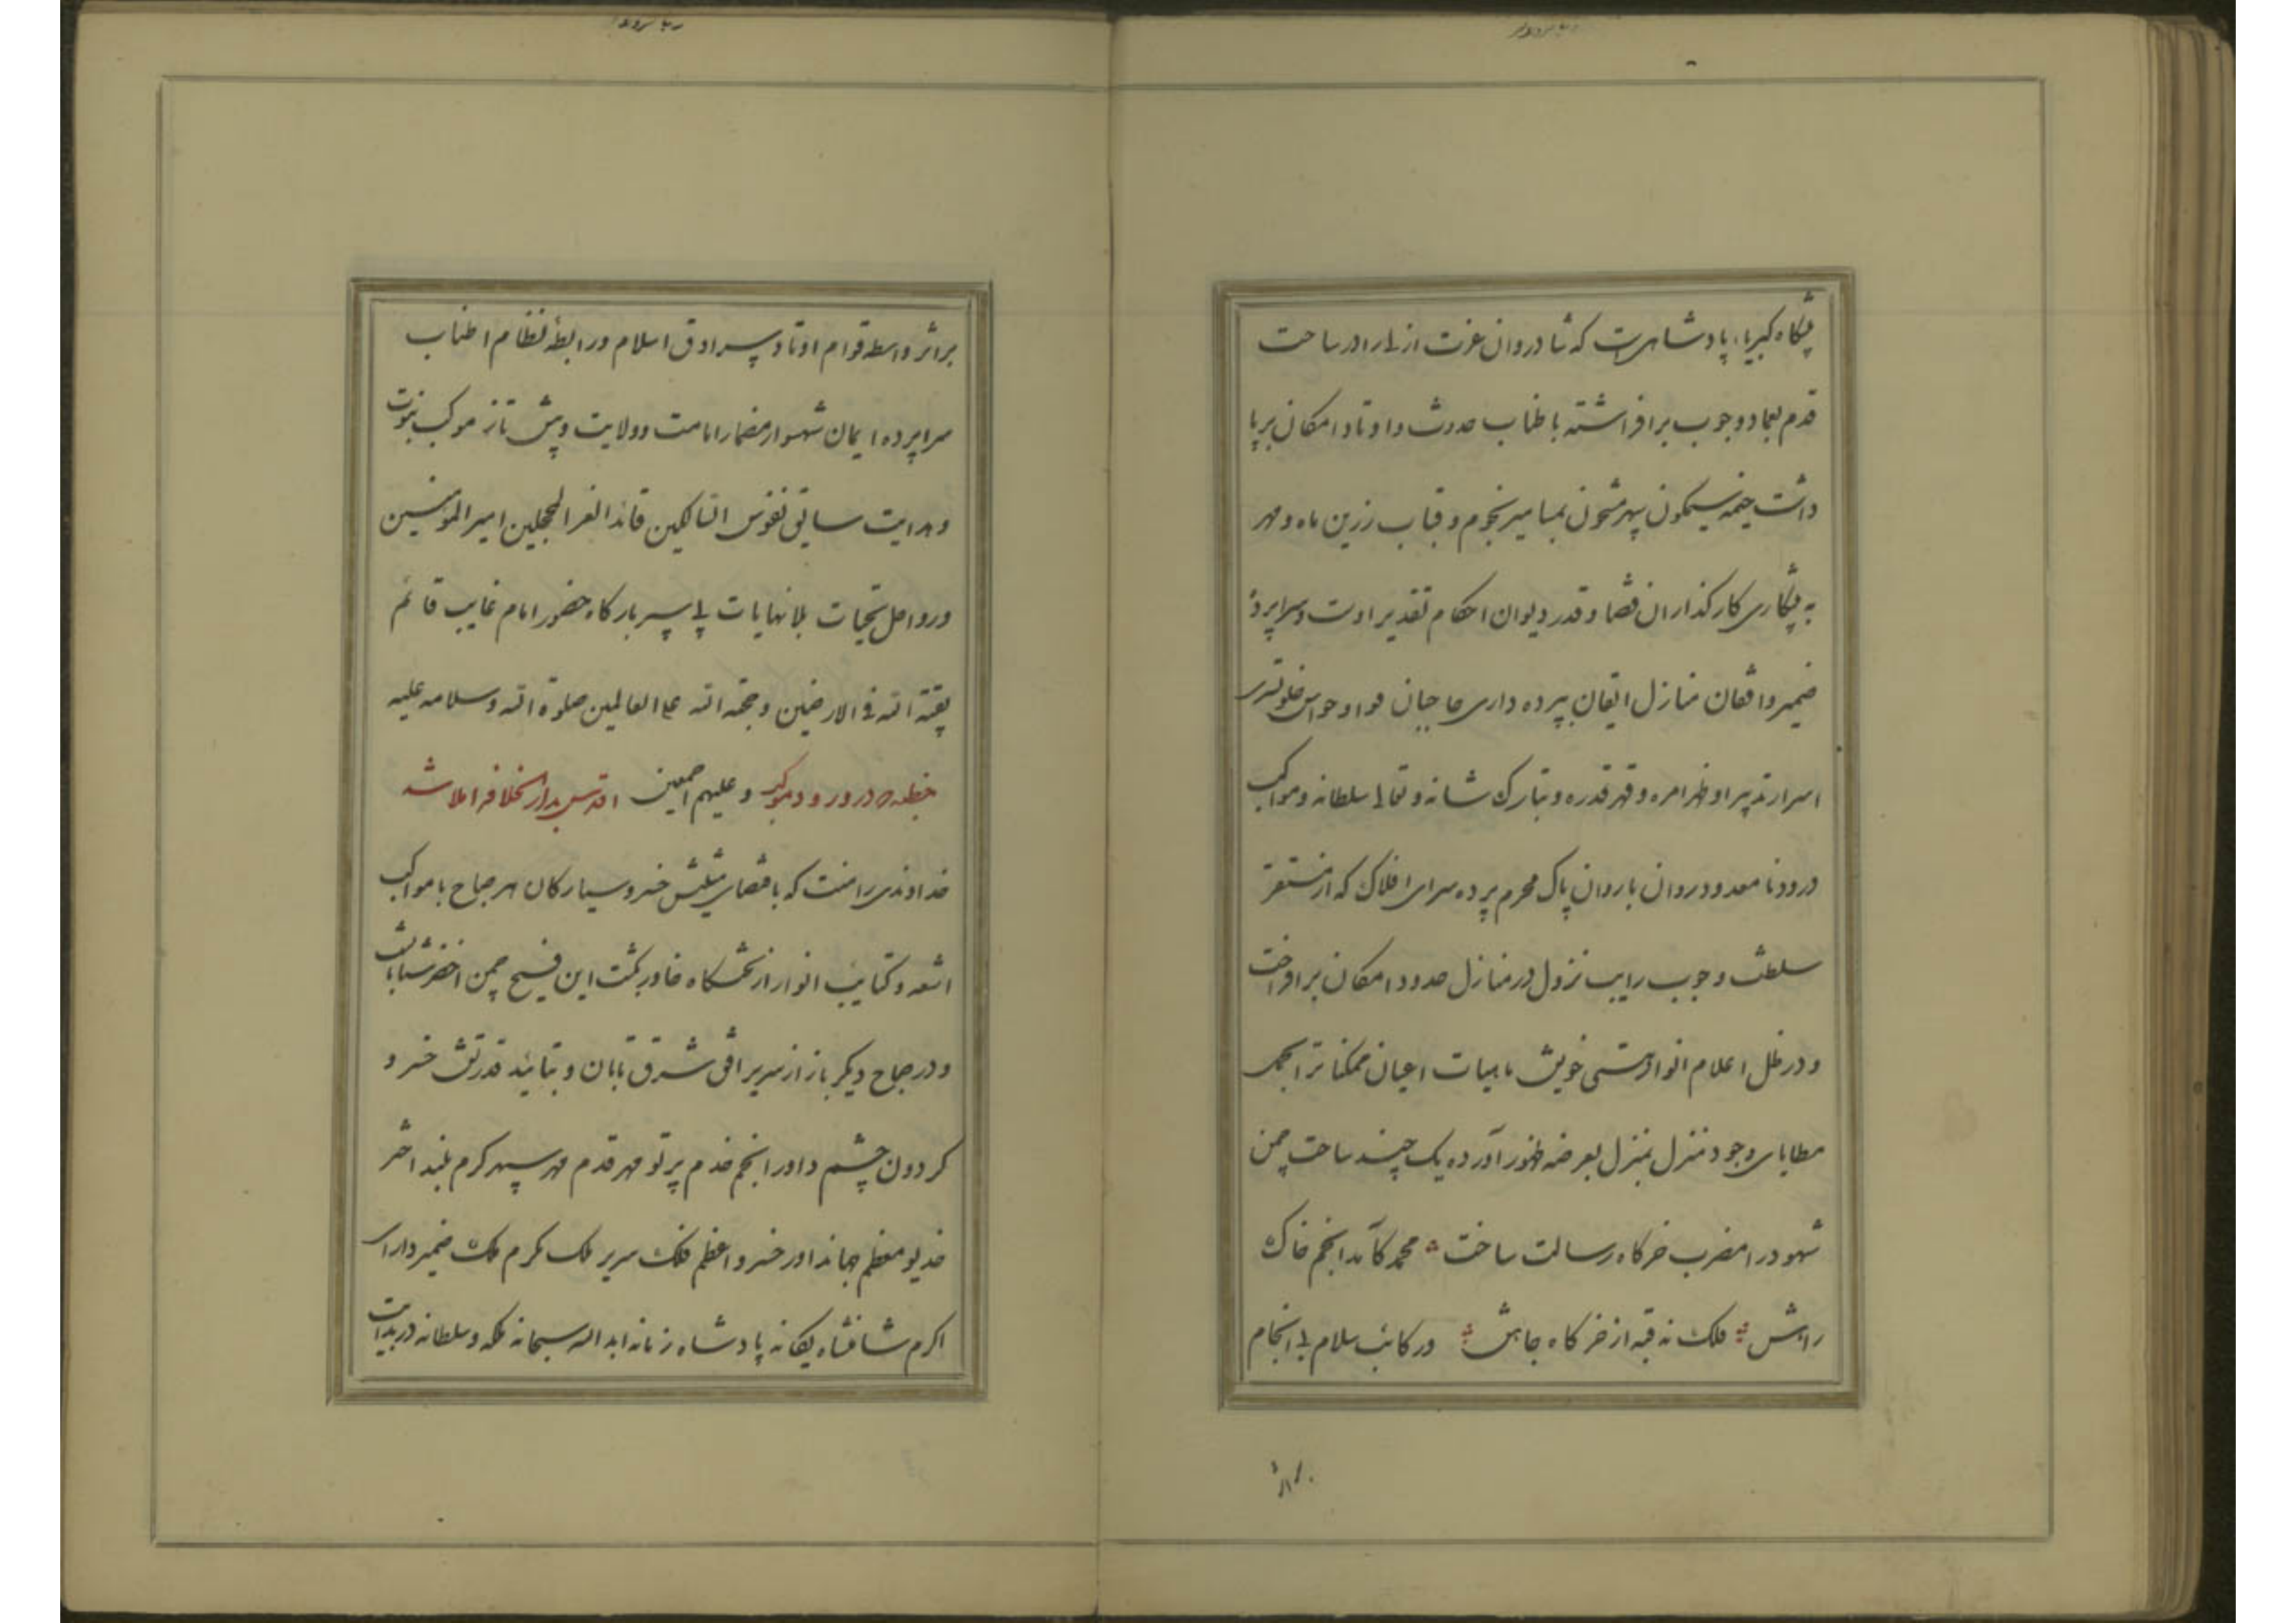 پیشگاه کبریاء پادشاهیست که شادروان عزت ازلی را در ساحت
قدم بعماد وجوب برافراشته باطناب حدوث و اوتاد امکان برپا
داشت خیمه نیلگون سپهر مشحون بمسامیر نجوم و قباب زرین ماه و مهر
به پیشکاری کارکذاران قضا و قدر دیوان احکام تقدیر اوست و سراپردهٔ
ضمیر واقفان منازل ایقان بپرده داری حاجبان هوا و حواس خلوتسرای
اسرار تدبیر او ظهر امره و قهر قدره و تبارک شانه و تعالی سلطانه و مواکب
درود نامعدود روان باروان پاک محرم پرده سرای افلاک که از مستقر
سلطنت وجوب رایت نزول در منازل حدود امکان برافراخت
و در ظل اعلام انوار هستی خویش ماهیات اعیان ممکناترا بجمله
مطایای وجود منزل بمنزل بعرضه ظهور آورده یک چند ساحت چمن
شهود را مضرب خرکاه رسالت ساخت محمد کآمد انجم خاک
راهش فلک نه قبه از خرکاه جاهش ورکائب سلام بی انجام
براثر واسطه قوام اوتاد سرادق اسلام و رابطهٔ نظام اطناب
سراپرده ایمان شهسوار مضمار امامت و ولایت و پیش تاز موکب نبوت
و هدایت سائق نفوس السالکین قائد الغر المحجلین امیر المؤمنین
ورواحل تحیات بلا نهایات پی سپر بارکاه حضور امام غایب قائم
بقیة الله فی الارضین و حجة الله علی العالمین صلوة الله و سلامه علیه
و علیهم اجمعین خطبه در ورود موکب اقدس بدار الخلافه املا شد
خداوندی را منت که باقضای مثیتش خسرو سیارکان هر صباح با مواکب
اشعه و کتایب انوار از تختکاه خاور بکشت این فسیح چمن اخضر شتابان
و در صباح دیکر باز از سریر افق شرق تابان و بتائید قدرتش خسرو
کردون حشم داور انجم خدم پرتو مهر قدم مهر سپهر کرم بلند اختر
خدیو معظم جهاندار خسرو اعظم فلک سریر ملک مکرم ملک ضمیر دارای
اکرم شاهنشاه یکانه پادشاه زمانه ابد الله سبحانه ملکه و سلطانه در بدایت